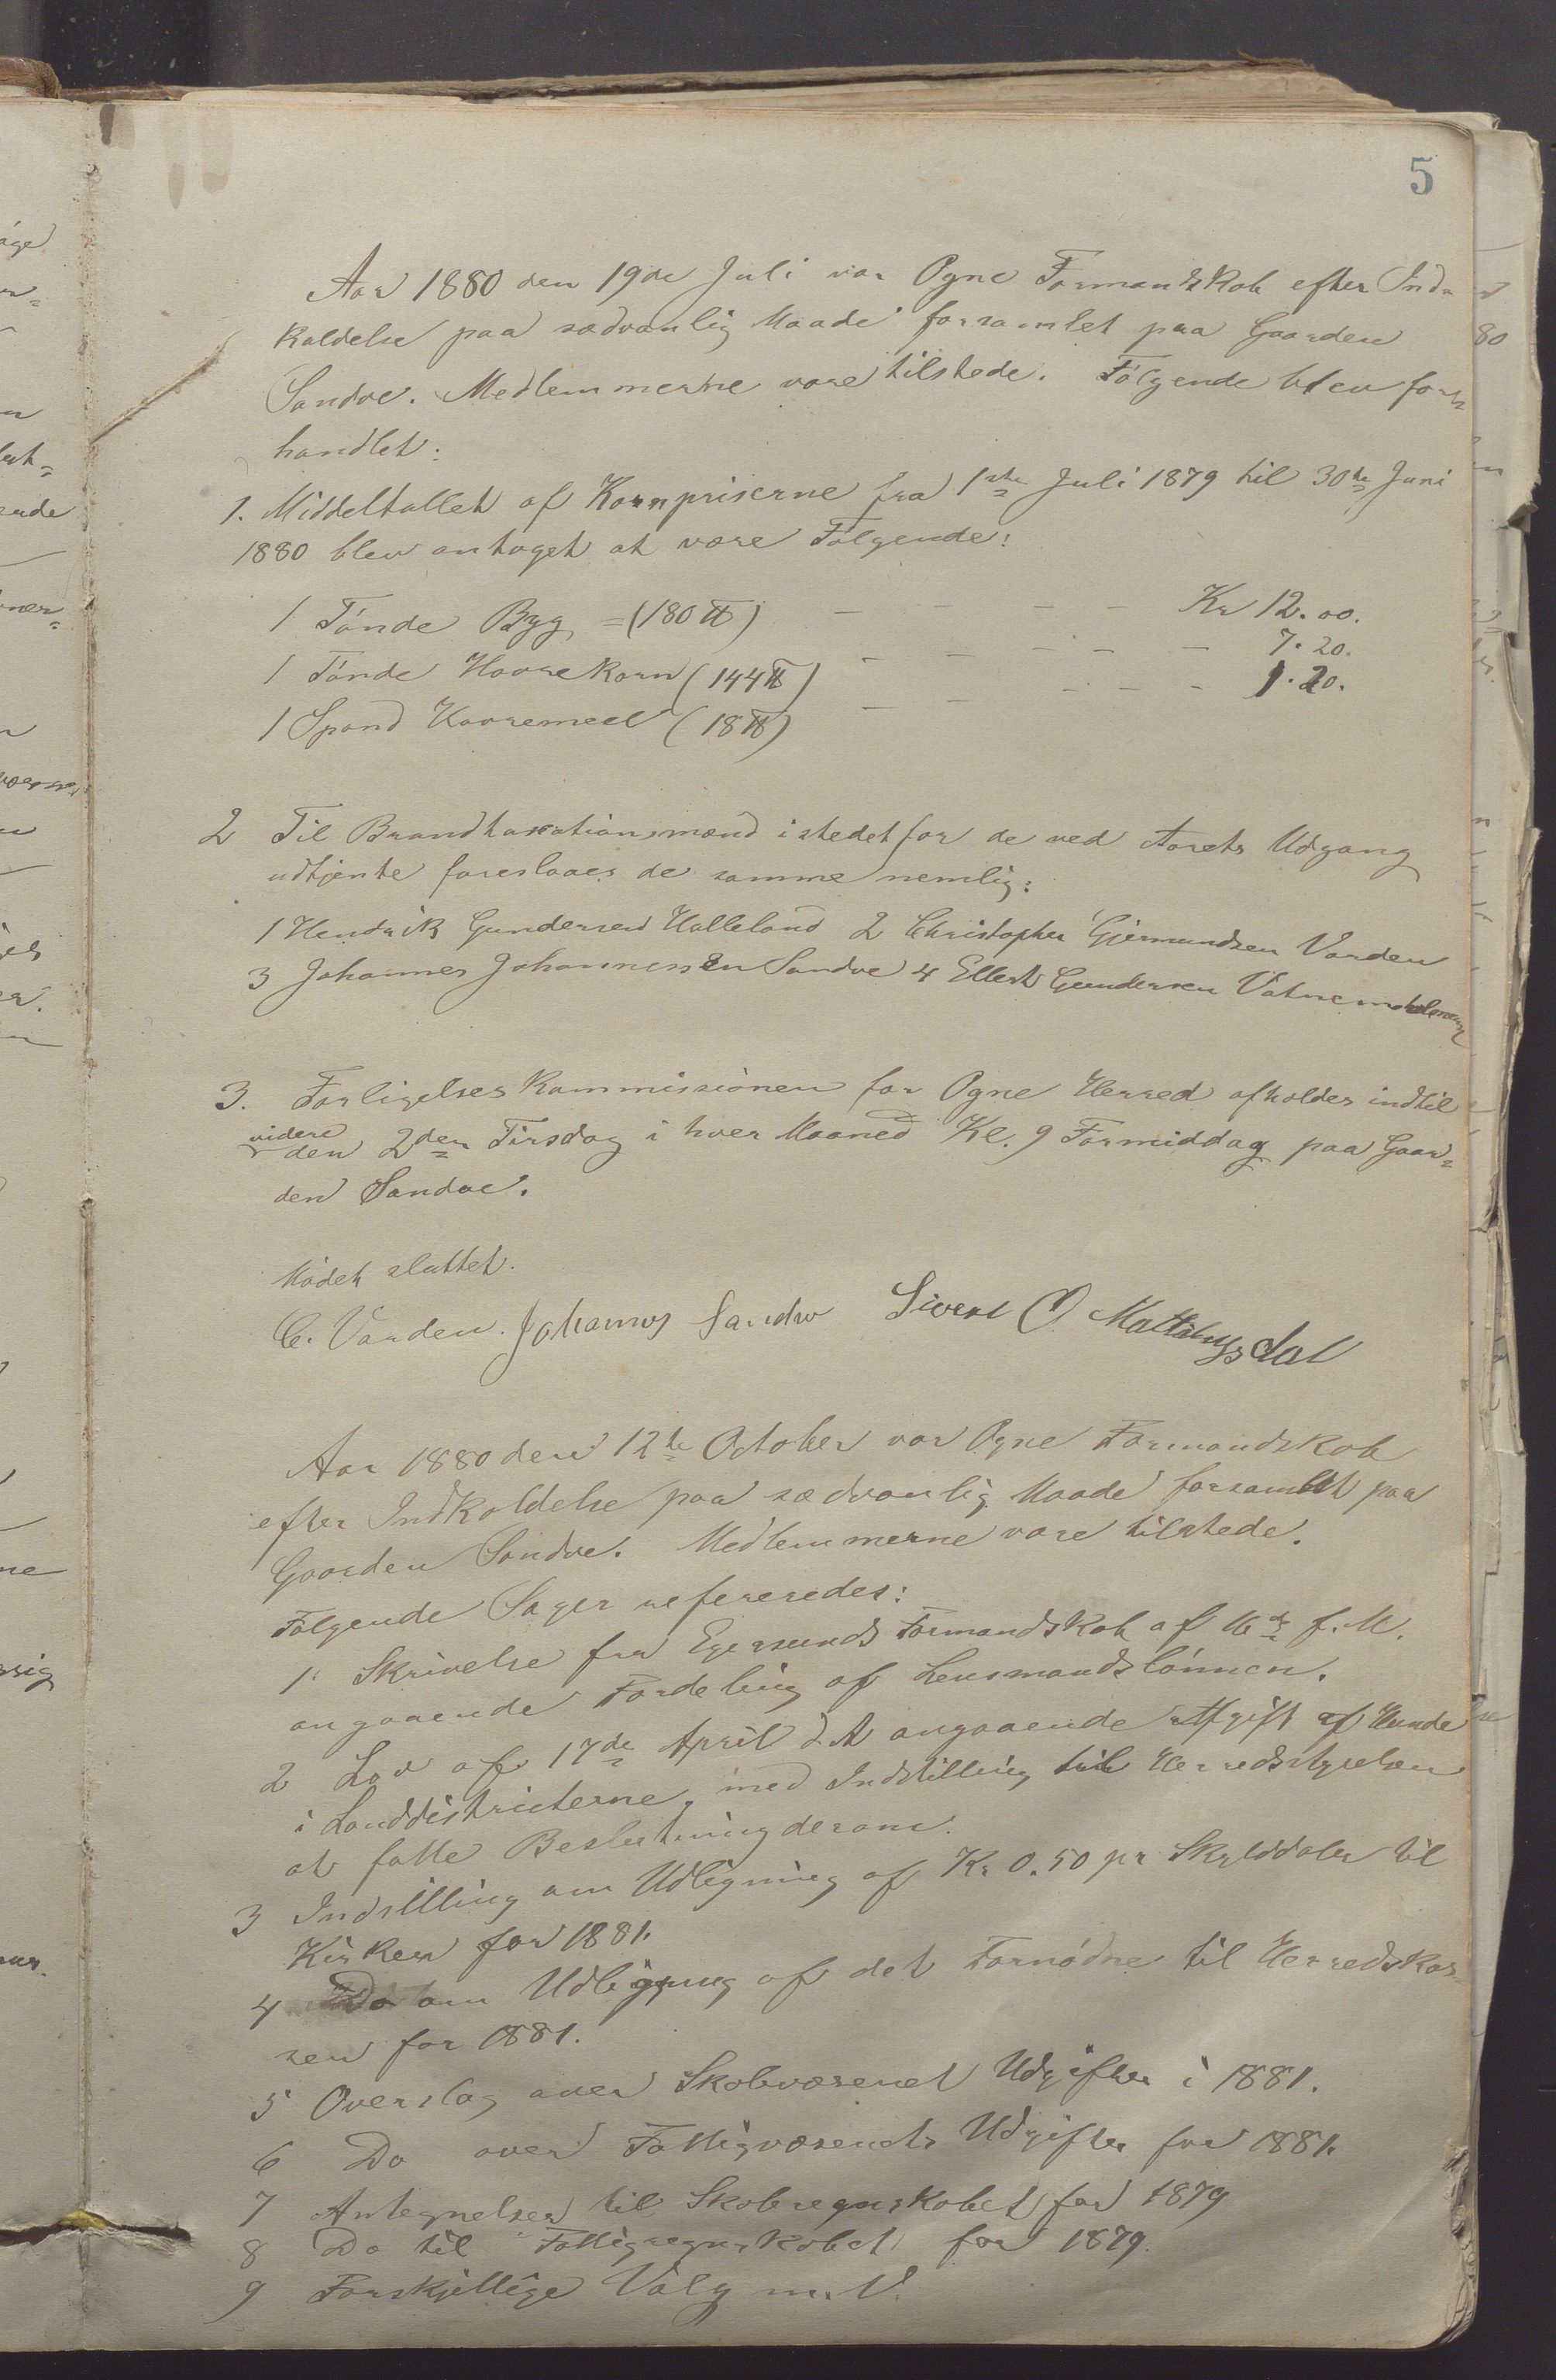 5
Aar 1880 den 19de Juli var Ogne Formandskab efter Ind-
kaldelse paa sædvanlig Maade forsamlet paa Gaarden
Sandve. Medlemmerne vare tilstede. Følgende blev for-
handlet:
1. Middeltallet af Kornpriserne fra 1ste Juli 1879 til 30te Juni
1880 blev antaget at være Følgende:
1 Tønde Byg = (180 ℔) — — — — Kr 12.00.
1 Tønde Havrekorn (144 ℔) — — — — — 7.20.
1 Spand Havremeel (18 ℔) — — — — — 1.20.
2 Til Brandtaxationsmænd istedetfor de ved Aarets Udgang
udtjente foreslaaes de samme nemlig:
1 Hendrik Gundersen Halleland 2 Christopher Gjermundsen Varden
3 Johannes Johannessen Sandve 4 Ellert Gundersen Vatnemo
3. Forligelseskommissionen for Ogne Herred afholdes indtil
videre den 2den Tirsdag i hver Maaned Kl. 9 Formiddag paa Gaar-
den Sandve.
Mødet sluttet.
C. Varden. Johannes Sandve Sivert O Mattingsdal
Aar 1880 den 12te October var Ogne Formandskab
efter Indkaldelse paa sædvanlig Maade forsamlet paa
Gaarden Sandve. Medlemmerne vare tilstede.
Følgende Sager refereredes:
1 Skrivelse fra Egersunds Formandskab af 16de f. M.
angaaende Fordeling af Lensmandslønnen.
2 Lov af 17de April d. A angaaende Afgift af Hunde
i Landdistricterne, med Indstilling til Herredsstyrelsen
at fatte Beslutning derom.
3 Indstilling om Udligning af Kr 0.50 pr Skylddaler til
Kirken for 1881.
4 Do om Udligning af det Fornødne til Herredskas-
sen for 1881.
5 Overslag over Skolevæsenet Udgifter i 1881.
6 Do over Fattigvæsenets Udgifter for 1881.
7 Antegnelser til Skoleregnskabet for 1879
8 Do til Fattigregnskabet for 1879.
9 Forskjellige Valg m. V.